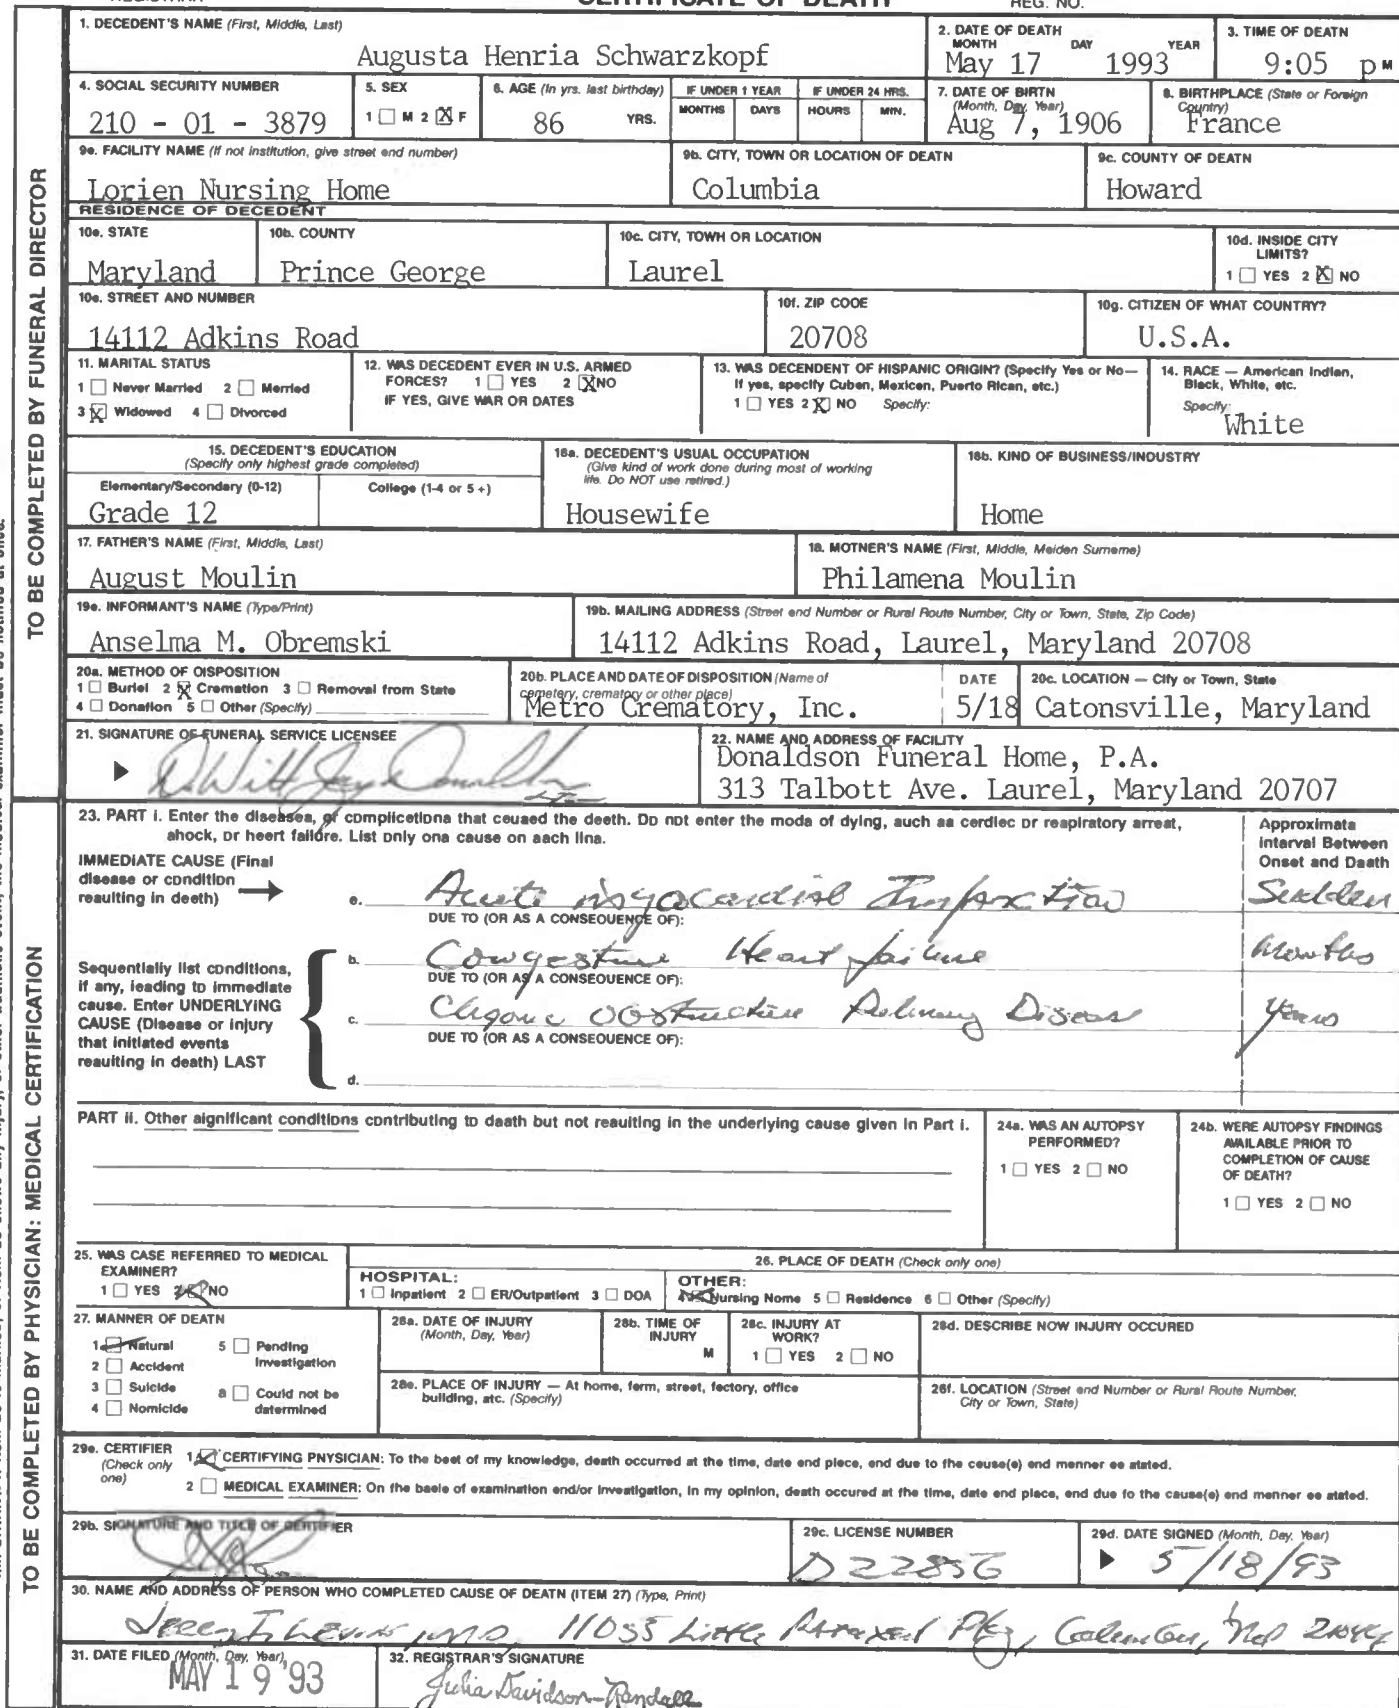 CERTIFICATE OF DEATH
REG. NO.
1. DECEDENT'S NAME (First, Middle, Last)
Augusta Henria Schwarzkopf
2. DATE OF DEATH
MONTH DAY YEAR
May 17 1993
3. TIME OF DEATH
9:05 p M
4. SOCIAL SECURITY NUMBER
210 - 01 - 3879
5. SEX
1 ☐ M 2 ☒ F
6. AGE (In yrs. last birthday)
86 YRS.
IF UNDER 1 YEAR
MONTHS DAYS
IF UNDER 24 HRS.
HOURS MIN.
7. DATE OF BIRTH
(Month, Day, Year)
Aug 7, 1906
8. BIRTHPLACE (State or Foreign
Country)
France
9a. FACILITY NAME (If not institution, give street and number)
Lorien Nursing Home
9b. CITY, TOWN OR LOCATION OF DEATH
Columbia
9c. COUNTY OF DEATH
Howard
RESIDENCE OF DECEDENT
10a. STATE
Maryland
10b. COUNTY
Prince George
10c. CITY, TOWN OR LOCATION
Laurel
10d. INSIDE CITY
LIMITS?
1 ☐ YES 2 ☒ NO
10e. STREET AND NUMBER
14112 Adkins Road
10f. ZIP CODE
20708
10g. CITIZEN OF WHAT COUNTRY?
U.S.A.
11. MARITAL STATUS
1 ☐ Never Married 2 ☐ Married
3 ☒ Widowed 4 ☐ Divorced
12. WAS DECEDENT EVER IN U.S. ARMED
FORCES? 1 ☐ YES 2 ☒ NO
IF YES, GIVE WAR OR DATES
13. WAS DECENDENT OF HISPANIC ORIGIN? (Specify Yes or No—
If yes, specify Cuban, Mexican, Puerto Rican, etc.)
1 ☐ YES 2 ☒ NO Specify:
14. RACE — American Indian,
Black, White, etc.
Specify:
White
15. DECEDENT'S EDUCATION
(Specify only highest grade completed)
Elementary/Secondary (0-12) College (1-4 or 5+)
Grade 12
16a. DECEDENT'S USUAL OCCUPATION
(Give kind of work done during most of working
life. Do NOT use retired.)
Housewife
16b. KIND OF BUSINESS/INDUSTRY
Home
17. FATHER'S NAME (First, Middle, Last)
August Moulin
18. MOTHER'S NAME (First, Middle, Maiden Surname)
Philamena Moulin
19a. INFORMANT'S NAME (Type/Print)
Anselma M. Obremski
19b. MAILING ADDRESS (Street and Number or Rural Route Number, City or Town, State, Zip Code)
14112 Adkins Road, Laurel, Maryland 20708
20a. METHOD OF DISPOSITION
1 ☐ Burial 2 ☒ Cremation 3 ☐ Removal from State
4 ☐ Donation 5 ☐ Other (Specify)
20b. PLACE AND DATE OF DISPOSITION (Name of
cemetery, crematory or other place)
Metro Crematory, Inc.
DATE
5/18
20c. LOCATION — City or Town, State
Catonsville, Maryland
21. SIGNATURE OF FUNERAL SERVICE LICENSEE
22. NAME AND ADDRESS OF FACILITY
Donaldson Funeral Home, P.A.
313 Talbott Ave. Laurel, Maryland 20707
TO BE COMPLETED BY FUNERAL DIRECTOR
23. PART I. Enter the diseases, or complications that caused the death. Do not enter the mode of dying, such as cardiac or respiratory arrest,
shock, or heart failure. List only one cause on each line.
Approximate
Interval Between
Onset and Death
IMMEDIATE CAUSE (Final
disease or condition
resulting in death)
a. Acute myocardial Infarction
Sudden
DUE TO (OR AS A CONSEQUENCE OF):
Sequentially list conditions,
if any, leading to immediate
cause. Enter UNDERLYING
CAUSE (Disease or injury
that initiated events
resulting in death) LAST
b. Congestive Heart failure
Months
DUE TO (OR AS A CONSEQUENCE OF):
c. Chronic Obstructive Pulmonary Disease
Years
DUE TO (OR AS A CONSEQUENCE OF):
d.
PART II. Other significant conditions contributing to death but not resulting in the underlying cause given in Part I.
24a. WAS AN AUTOPSY
PERFORMED?
1 ☐ YES 2 ☐ NO
24b. WERE AUTOPSY FINDINGS
AVAILABLE PRIOR TO
COMPLETION OF CAUSE
OF DEATH?
1 ☐ YES 2 ☐ NO
25. WAS CASE REFERRED TO MEDICAL
EXAMINER?
1 ☐ YES 2 ☒ NO
26. PLACE OF DEATH (Check only one)
HOSPITAL:
1 ☐ Inpatient 2 ☐ ER/Outpatient 3 ☐ DOA
OTHER:
4 ☒ Nursing Home 5 ☐ Residence 6 ☐ Other (Specify)
27. MANNER OF DEATH
1 ☒ Natural 5 ☐ Pending
Investigation
2 ☐ Accident
3 ☐ Suicide 6 ☐ Could not be
determined
4 ☐ Homicide
28a. DATE OF INJURY
(Month, Day, Year)
28b. TIME OF
INJURY
M
28c. INJURY AT
WORK?
1 ☐ YES 2 ☐ NO
28d. DESCRIBE HOW INJURY OCCURED
28e. PLACE OF INJURY — At home, farm, street, factory, office
building, etc. (Specify)
28f. LOCATION (Street and Number or Rural Route Number,
City or Town, State)
29a. CERTIFIER
(Check only
one)
1 ☒ CERTIFYING PHYSICIAN: To the best of my knowledge, death occurred at the time, date and place, and due to the cause(s) and manner as stated.
2 ☐ MEDICAL EXAMINER: On the basis of examination and/or investigation, in my opinion, death occured at the time, date and place, and due to the cause(s) and manner as stated.
29b. SIGNATURE AND TITLE OF CERTIFIER
29c. LICENSE NUMBER
D22856
29d. DATE SIGNED (Month, Day, Year)
5/18/93
30. NAME AND ADDRESS OF PERSON WHO COMPLETED CAUSE OF DEATH (ITEM 27) (Type, Print)
M.D. 11055 Little Patuxent Pky, Columbia, Md 21044
31. DATE FILED (Month, Day, Year)
MAY 19 '93
32. REGISTRAR'S SIGNATURE
Julia Davidson-Randall
TO BE COMPLETED BY PHYSICIAN: MEDICAL CERTIFICATION